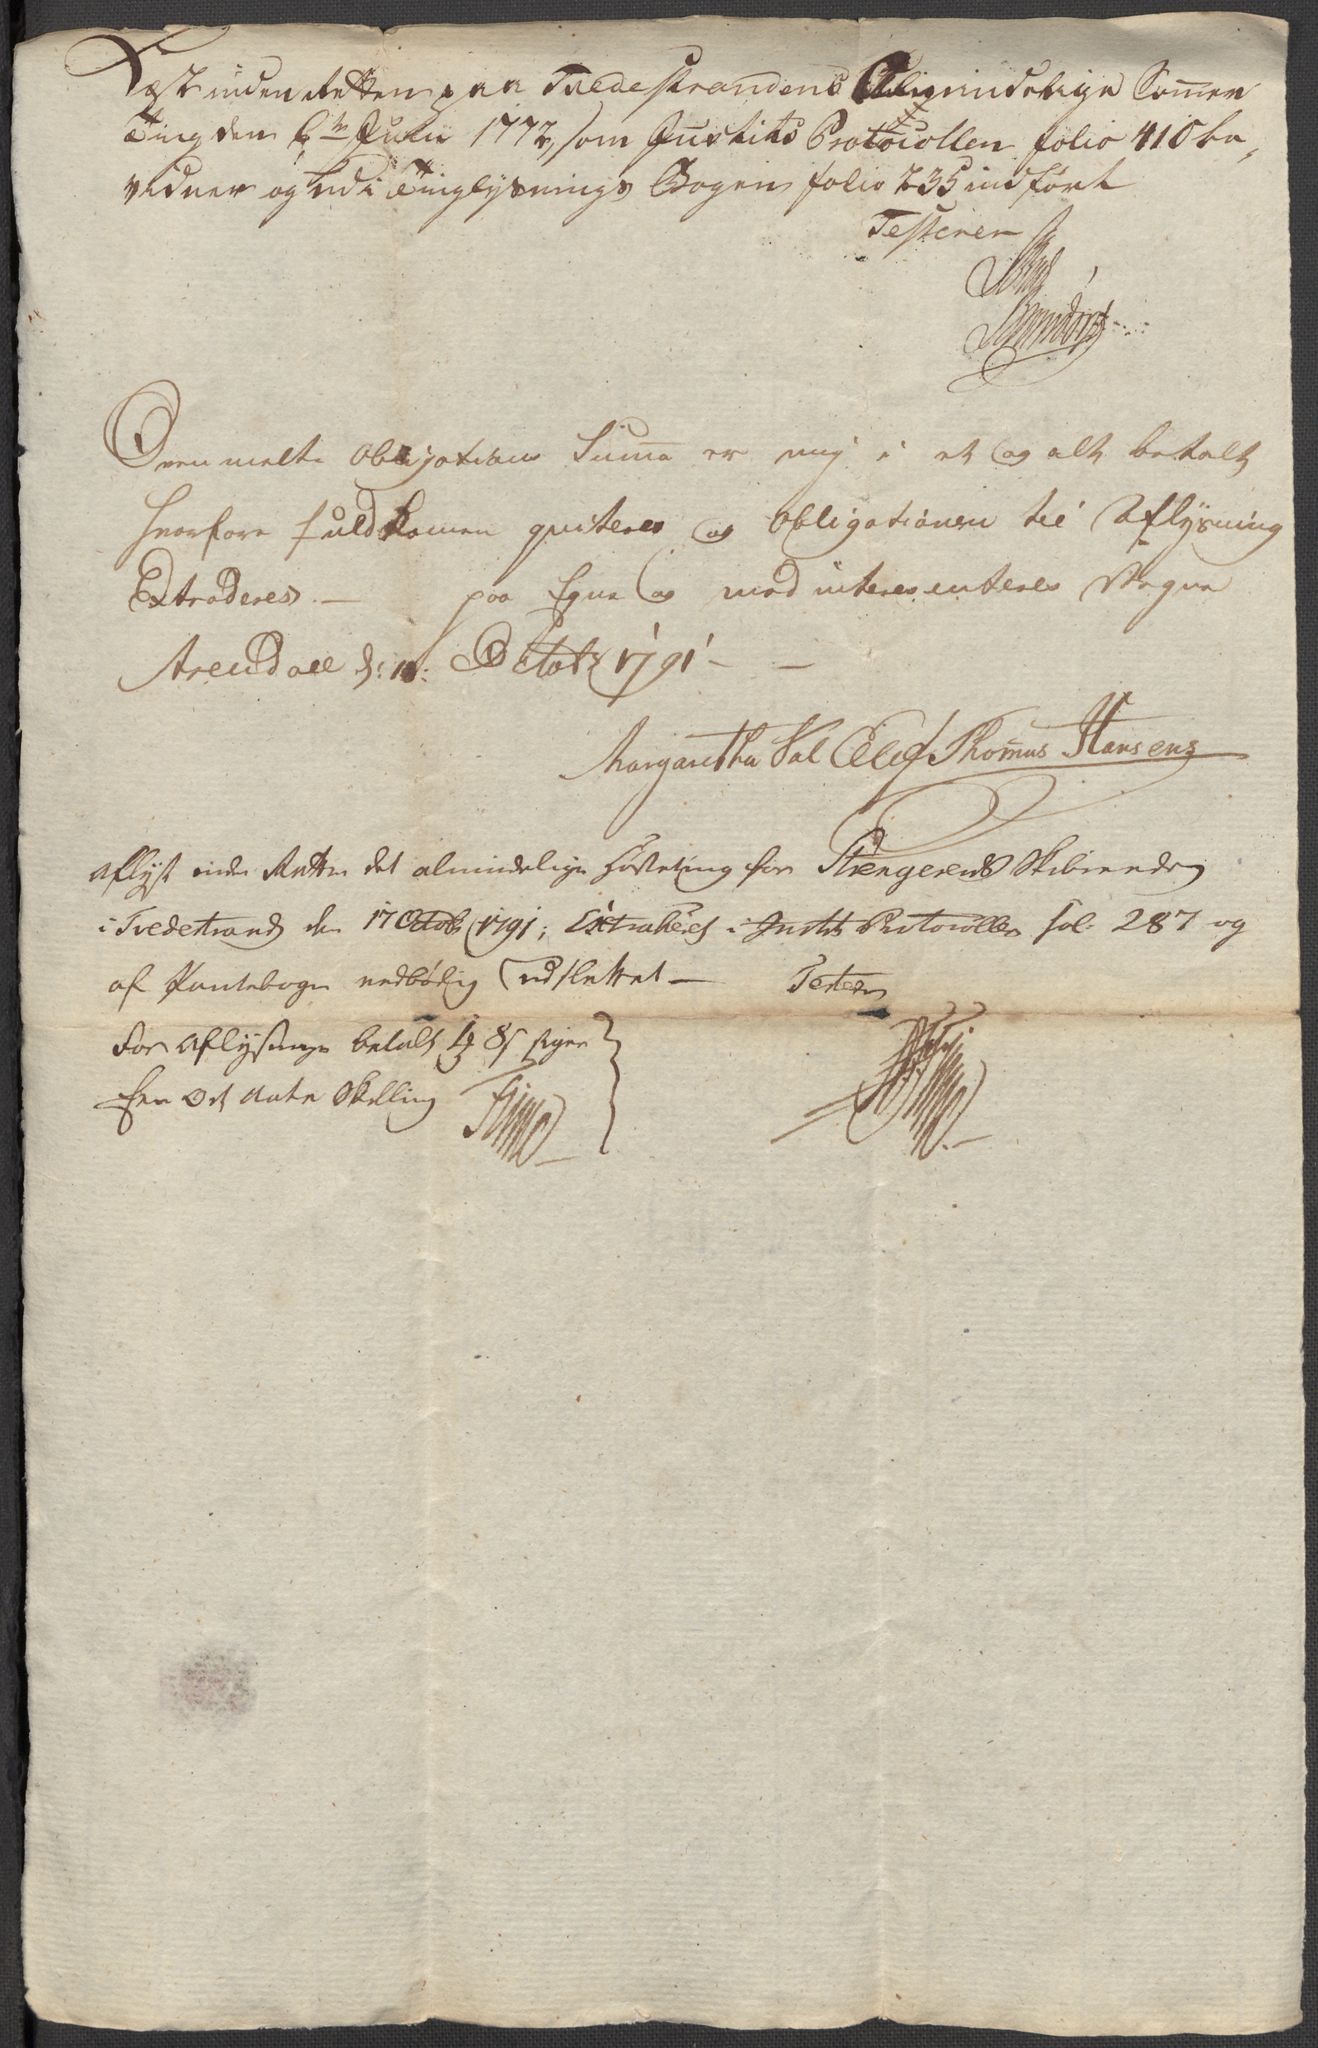 Læst inden Retten paa Tvedestrandens Allmindelige Sommer
Ting den 6te Julii 1772, som Justits Protocollen folio 410 be,
vidner og ud i Tinglysnings Bogen folio 235 indført
Testerer
Ovenmelte Obligations Summa er mig i et og alt betalt
hvorfore fuldkomen qviteres og Obligationen til Aflysning
Extraderes. — paa Egne og med interesenteres Vegne
Arendall d: 11: Octobr 1791 — —
Margaretha Sal Elef Thommas Hansens
Aflyst inden Retten det almindelige Høsteting for Skibrede
i Tvedestrand den 17 Octobr 1791; Extraheret i Justits Protocollen fol. 287 og
af Pantebogen nedbørlig udslettet — Tester
For Aflysninge betalt 1 ort 8 s siger
Een Ort Aatte Skelling